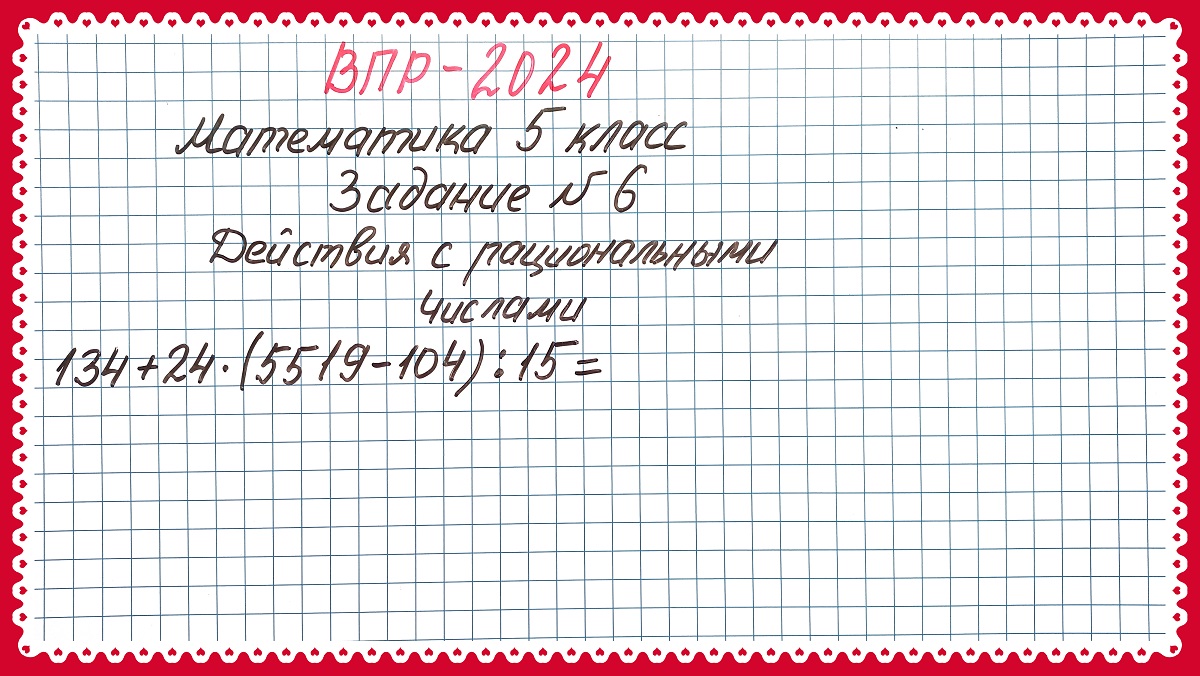 ВПР-2024
Математика 5 класс
Задание №6
Действия с рациональными
числами
134+24·(5519-104):15=